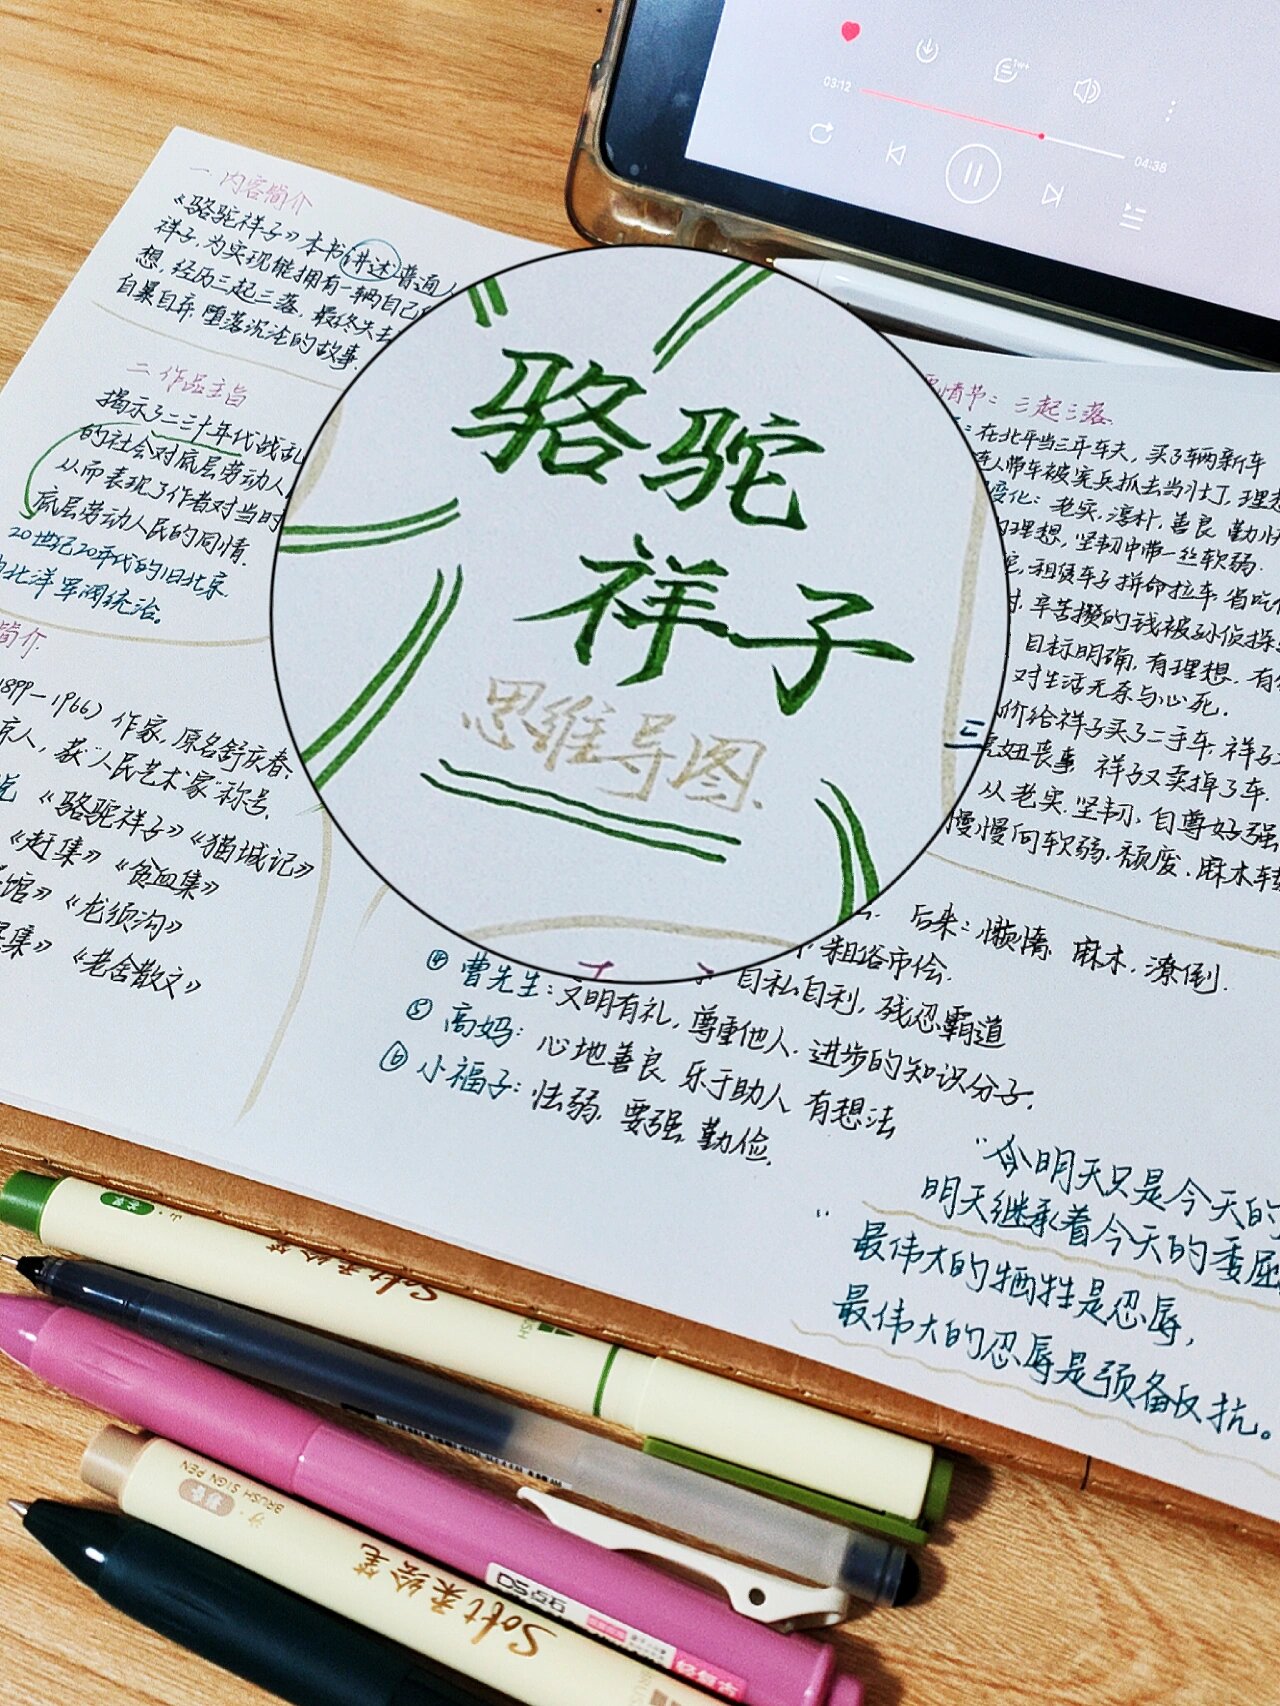 03:12
04:38
一 内容简介
《骆驼祥子》本书讲述普通
祥子,为实现能拥有一辆自己
想,经历三起三落,最终失去
自暴自弃,堕落沉沦的故事.
二 作品主旨
揭示了二三十年代战乱
的社会对底层劳动人
从而表现了作者对当时
底层劳动人民的同情.
20世纪20年代的旧北京
北洋军阀统治。
简介
1899-1966)作家,原名舒庆春
京人,获"人民艺术家"称号.
说《骆驼祥子》《猫城记》
《赶集》《贫血集》
馆》《龙须沟》
集》《老舍散文》
骆驼
祥子
思维导图.
情节:三起三落.
:在北平当三年车夫,买了辆新车
连人带车被宪兵抓去当壮丁,理想
变化:老实,淳朴,善良 勤快
理想,坚韧中带一丝软弱.
,租赁车子拼命拉车.省吃
,辛苦攒的钱被孙侦探
目标明确,有理想.有
对生活无奈与心死.
三
价给祥子买了二手车,祥子
虎妞丧事,祥子又卖掉了车.
从老实.坚韧,自尊好强
慢慢向软弱.颓废.麻木转
后来:懒惰.麻木.潦倒.
粗俗市侩.
自私自利,残忍霸道
④ 曹先生:文明有礼,尊重他人.进步的知识分子.
⑤ 高妈:心地善良,乐于助人 有想法
⑥ 小福子:怯弱.要强,勤俭.
明天只是今天的
明天继承着今天的委屈
"最伟大的牺牲是忍辱,
最伟大的忍辱是预备反抗。
Soft柔绘笔
BRUSH SIGN PEN
Soft柔绘笔